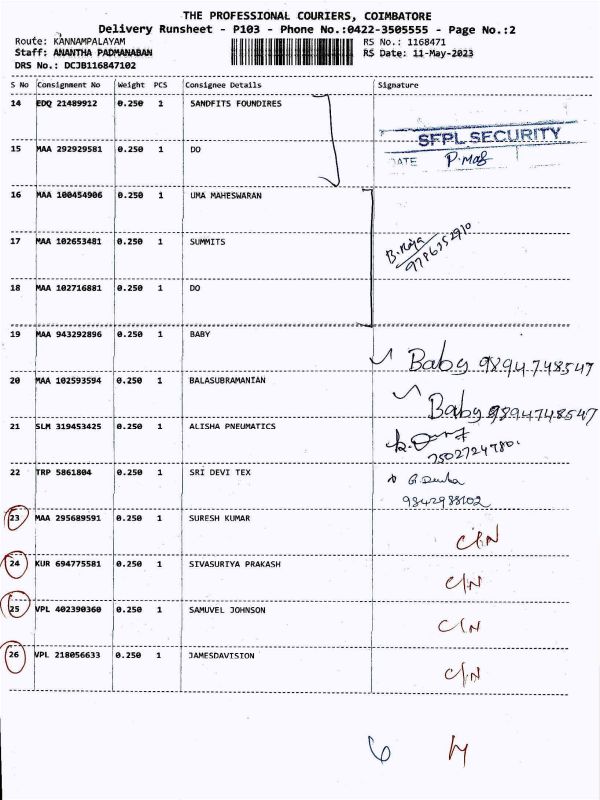 THE PROFESSIONAL COURIERS, COIMBATORE
Delivery Runsheet - P103 - Phone No.:0422-3505555 - Page No.:2
Route: KANNAMPALAYAM RS No.: 1168471
Staff: ANANTHA PADMANABAN RS Date: 11-May-2023
DRS No.: DCJB116847102
S No Consignment No Weight PCS Consignee Details Signature
14 EDQ 21489912 0.250 1 SANDFITS FOUNDIRES
SFPL SECURITY
15 MAA 292929581 0.250 1 DO
DATE
16 MAA 100454906 0.250 1 UMA MAHESWARAN
17 MAA 102653481 0.250 1 SUMMITS
18 MAA 102716881 0.250 1 DO
19 MAA 943292896 0.250 1 BABY
Baby 9894748547
20 MAA 102593594 0.250 1 BALASUBRAMANIAN
Baby 9894748547
21 SLM 319453425 0.250 1 ALISHA PNEUMATICS
7502724780.
22 TRP 5861804 0.250 1 SRI DEVI TEX
9842988102
23 MAA 295689591 0.250 1 SURESH KUMAR
C/N
24 KUR 694775581 0.250 1 SIVASURIYA PRAKASH
C/N
25 VPL 402390360 0.250 1 SAMUVEL JOHNSON
C/N
26 VPL 218056633 0.250 1 JAMESDAVISION
C/N
6